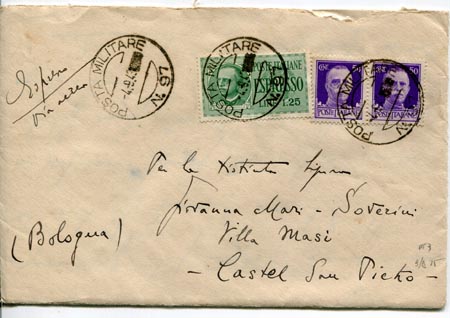 POSTA MILITARE
N. 97
Espresso
via aerea
POSTA MILITARE
N. 97
POSTE ITALIANE
ESPRESSO
LIRE 1,25
CENT 50
POSTE ITALIANE
50
POSTE ITALIANE
POSTA MILITARE
Per la
Giovanna Mari - Soverini
Villa Masi
(Bologna)
- Castel San Pietro -